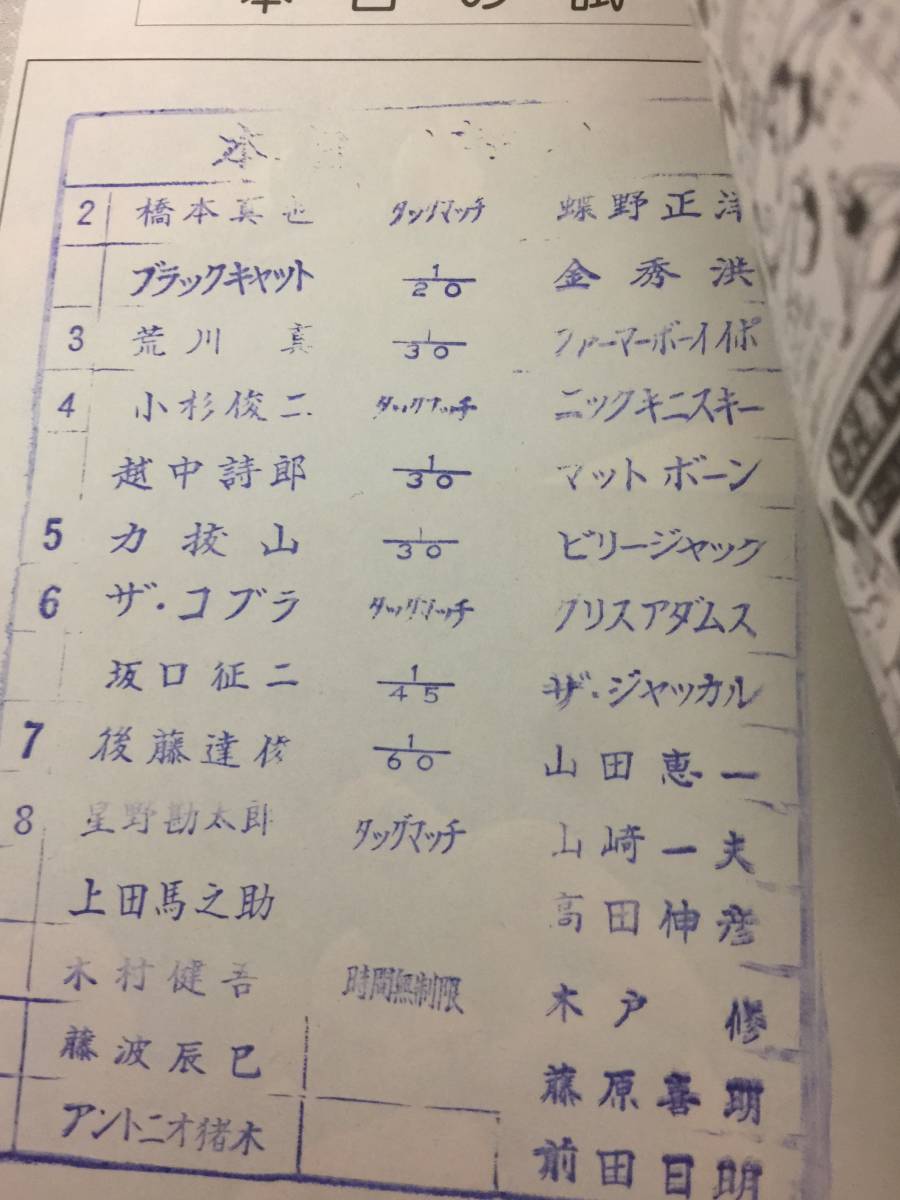 本日の試
本
2 橋本真也 タッグマッチ 蝶野正洋
ブラックキャット 1/20 金秀洪
3 荒川真 1/30 ファーマーボーイイポ
4 小杉俊二 タッグマッチ ニックキニスキー
越中詩郎 1/30 マットボーン
5 力抜山 1/30 ビリージャック
6 ザ・コブラ タッグマッチ クリスアダムス
坂口征二 1/45 ザ・ジャッカル
7 後藤達俊 1/60 山田恵一
8 星野勘太郎 タッグマッチ 山崎一夫
上田馬之助 高田伸彦
木村健吾 時間無制限 木戸修
藤波辰巳 藤原喜明
アントニオ猪木 前田日明